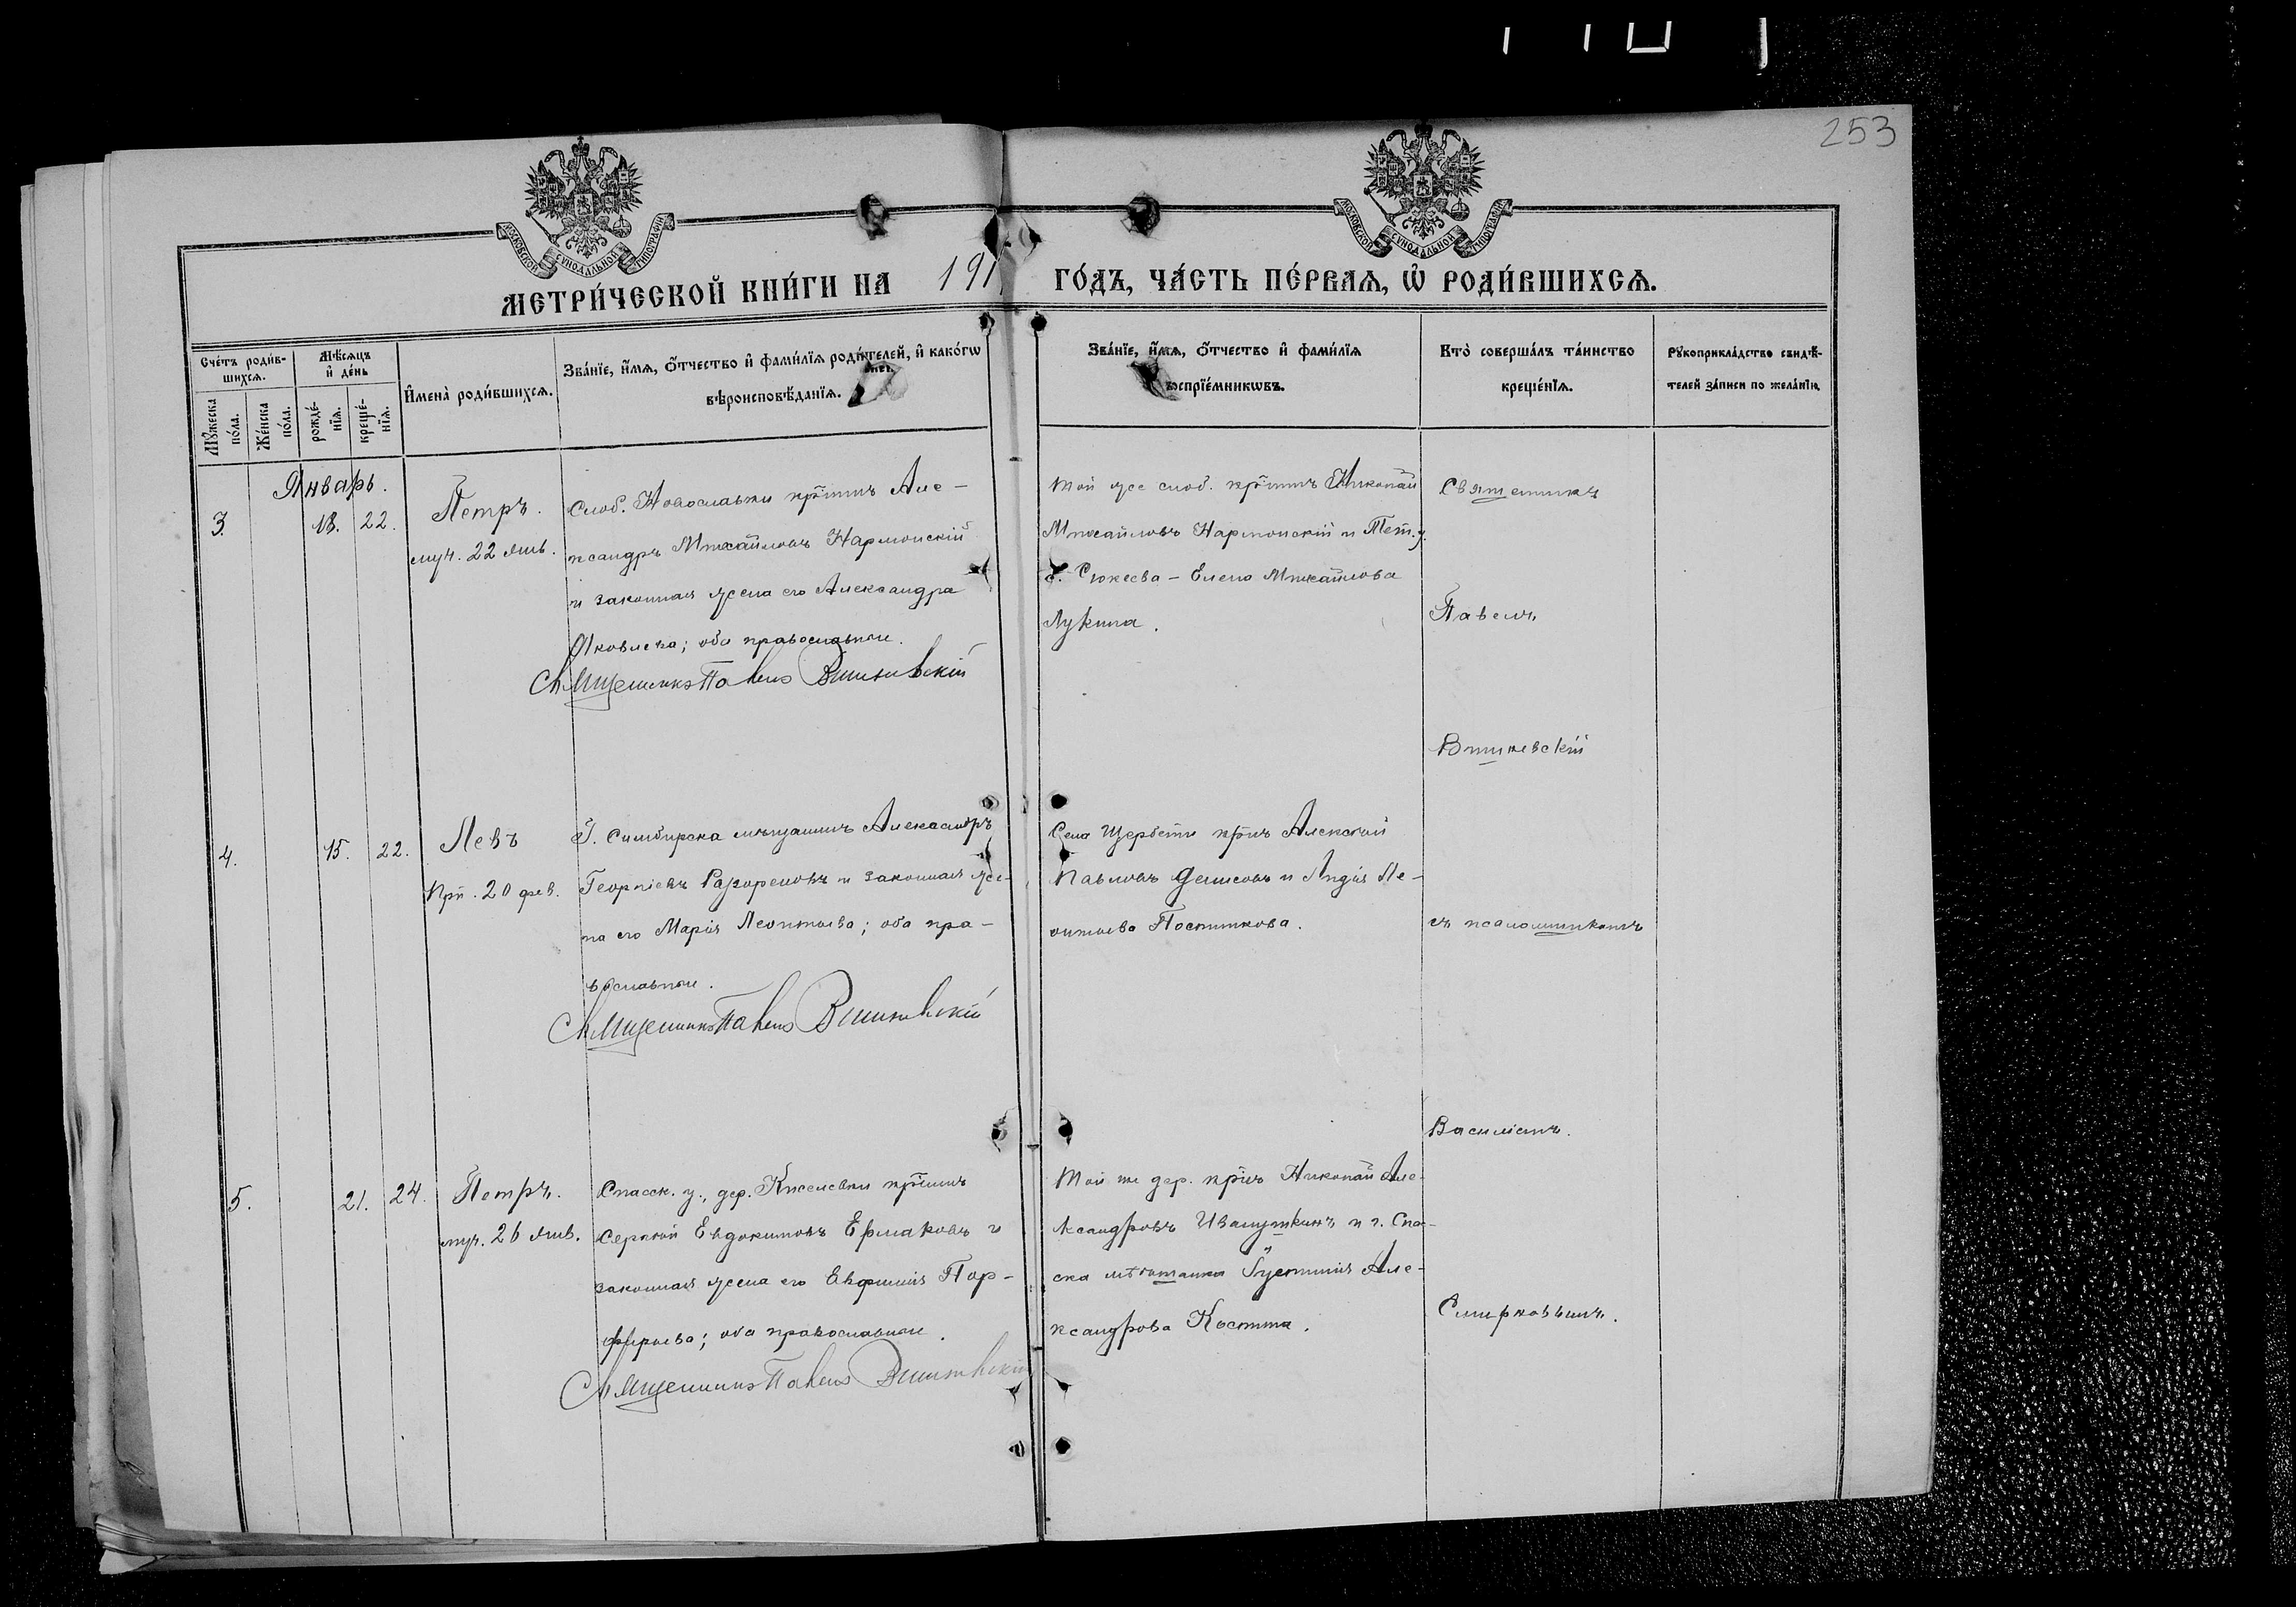 253
МОСКОВСКОЙ СѴНОДАЛЬНОЙ ТИПОГРАФІИ
МОСКОВСКОЙ СѴНОДАЛЬНОЙ ТИПОГРАФІИ
МЕТРИ́ЧЕСКОЙ КНИ́ГИ НА 191 ГО́ДЪ, ЧА́СТЬ ПЕ́РВАѦ, Ѿ РОДИ́ВШИХСѦ.
Сче́тъ роди́в-
шихсѧ.
Мꙋ́жеска
по́ла.
Же́нска
по́ла.
Мѣ́сѧцъ
и҆ де́нь
рожде́-
нїѧ.
креще́-
нїѧ.
И҆мена̀ роди́вшихсѧ.
Зва́нїе, и҆́мѧ, ѻ҆́тчество и҆ фами́лїѧ роди́телей, и҆ како́гѡ
вѣроисповѣ́данїѧ.
Зва́нїе, и҆́мѧ, ѻ҆́тчество и҆ фами́лїѧ
воспрїе́мникѡвъ.
Кто̀ соверша́лъ та́инство
креще́нїѧ.
Рꙋкоприкла́дство свидѣ́-
телей за́писи по жела́нїю.
Январь.
3.
18.
22.
Петръ.
муч. 22 янв.
Слоб. Новославки кр̃тинъ Але-
ксандръ Михайловъ Нармонскій
и законная жена его Александра
Яковлева; оба православные.
Священникъ Павелъ Вишневскій
Той же слоб. кр̃тинъ Николай
Михайловъ Нармонскій и Тет. у.
с. Сюкеева - Елена Михайлова
Лукина.
Священникъ
Павелъ
Вишневскій
4.
15.
22.
Левъ
Прп. 20 фев.
Г. Симбирска мѣщанинъ Александръ
Георгіевъ Разореновъ и законная же-
на его Марія Леонтьева; оба пра-
вославные.
Священникъ Павелъ Вишневскій
Села Щербети кр̃нъ Алексѣй
Павловъ Денисовъ и Лидія Ле-
онтьева Постникова.
съ псаломщикомъ
Василіемъ.
5.
21.
24.
Петръ.
муч. 26 янв.
Спасск. у., дер. Киселевки кр̃тинъ
Сергѣй Евдокимовъ Ермаковъ и
законная жена его Евфимія Пор-
фирьева; оба православные.
Священникъ Павелъ Вишневскій
Той же дер. кр̃нъ Николай Але-
ксандровъ Ивашуткинъ и г. Спа-
ска мѣщанка Іустинія Але-
ксандрова Костина.
Смирновымъ.